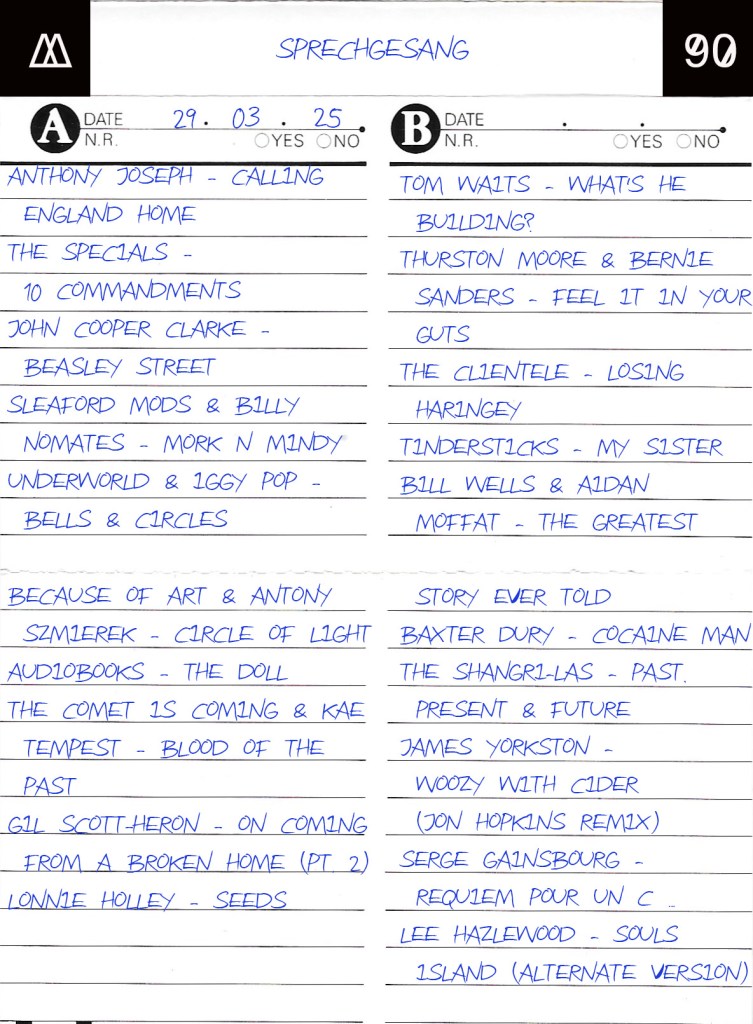 SPRECHGESANG
90
A DATE 29. 03. 25
N.R. YES NO
ANTHONY JOSEPH - CALLING
ENGLAND HOME
THE SPECIALS -
10 COMMANDMENTS
JOHN COOPER CLARKE -
BEASLEY STREET
SLEAFORD MODS & BILLY
NOMATES - MORK N MINDY
UNDERWORLD & IGGY POP -
BELLS & CIRCLES
BECAUSE OF ART & ANTONY
SZMIEREK - CIRCLE OF LIGHT
AUDIOBOOKS - THE DOLL
THE COMET IS COMING & KAE
TEMPEST - BLOOD OF THE
PAST
GIL SCOTT-HERON - ON COMING
FROM A BROKEN HOME (PT. 2)
LONNIE HOLLEY - SEEDS
B DATE . .
N.R. YES NO
TOM WAITS - WHAT'S HE
BUILDING?
THURSTON MOORE & BERNIE
SANDERS - FEEL IT IN YOUR
GUTS
THE CLIENTELE - LOSING
HARINGEY
TINDERSTICKS - MY SISTER
BILL WELLS & AIDAN
MOFFAT - THE GREATEST
STORY EVER TOLD
BAXTER DURY - COCAINE MAN
THE SHANGRI-LAS - PAST,
PRESENT & FUTURE
JAMES YORKSTON -
WOOZY WITH CIDER
(JON HOPKINS REMIX)
SERGE GAINSBOURG -
REQUIEM POUR UN C...
LEE HAZLEWOOD - SOULS
ISLAND (ALTERNATE VERSION)